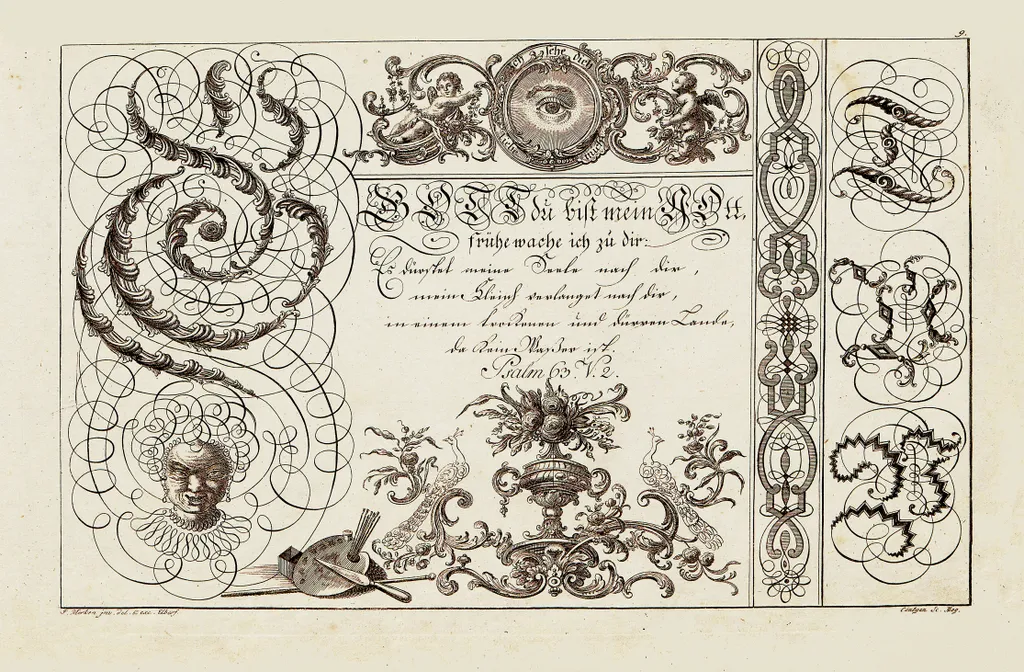 9.
GOTT du bist mein GOtt,
frühe wache ich zu dir:
Es dürstet meine Seele nach dir,
mein Fleisch verlanget nach dir,
in einem trockenen und dürren Lande,
da kein Waßer ist.
Psalm 63 V. 2.